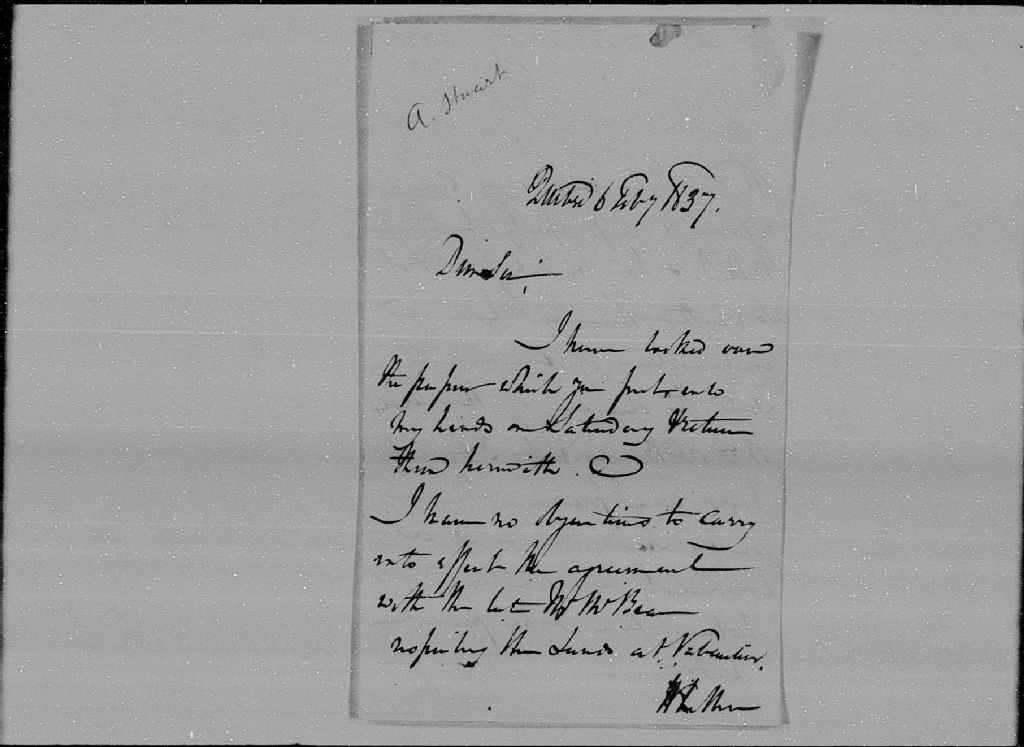 A. Stuart
Quebec 6 Feby 1837.
Dear Sir,
I have looked over
the papers which you put into
my hands on Saturday & return
them herewith.
I have no objections to carry
into effect the agreement
with the late Mr McBean
respecting the Lands at